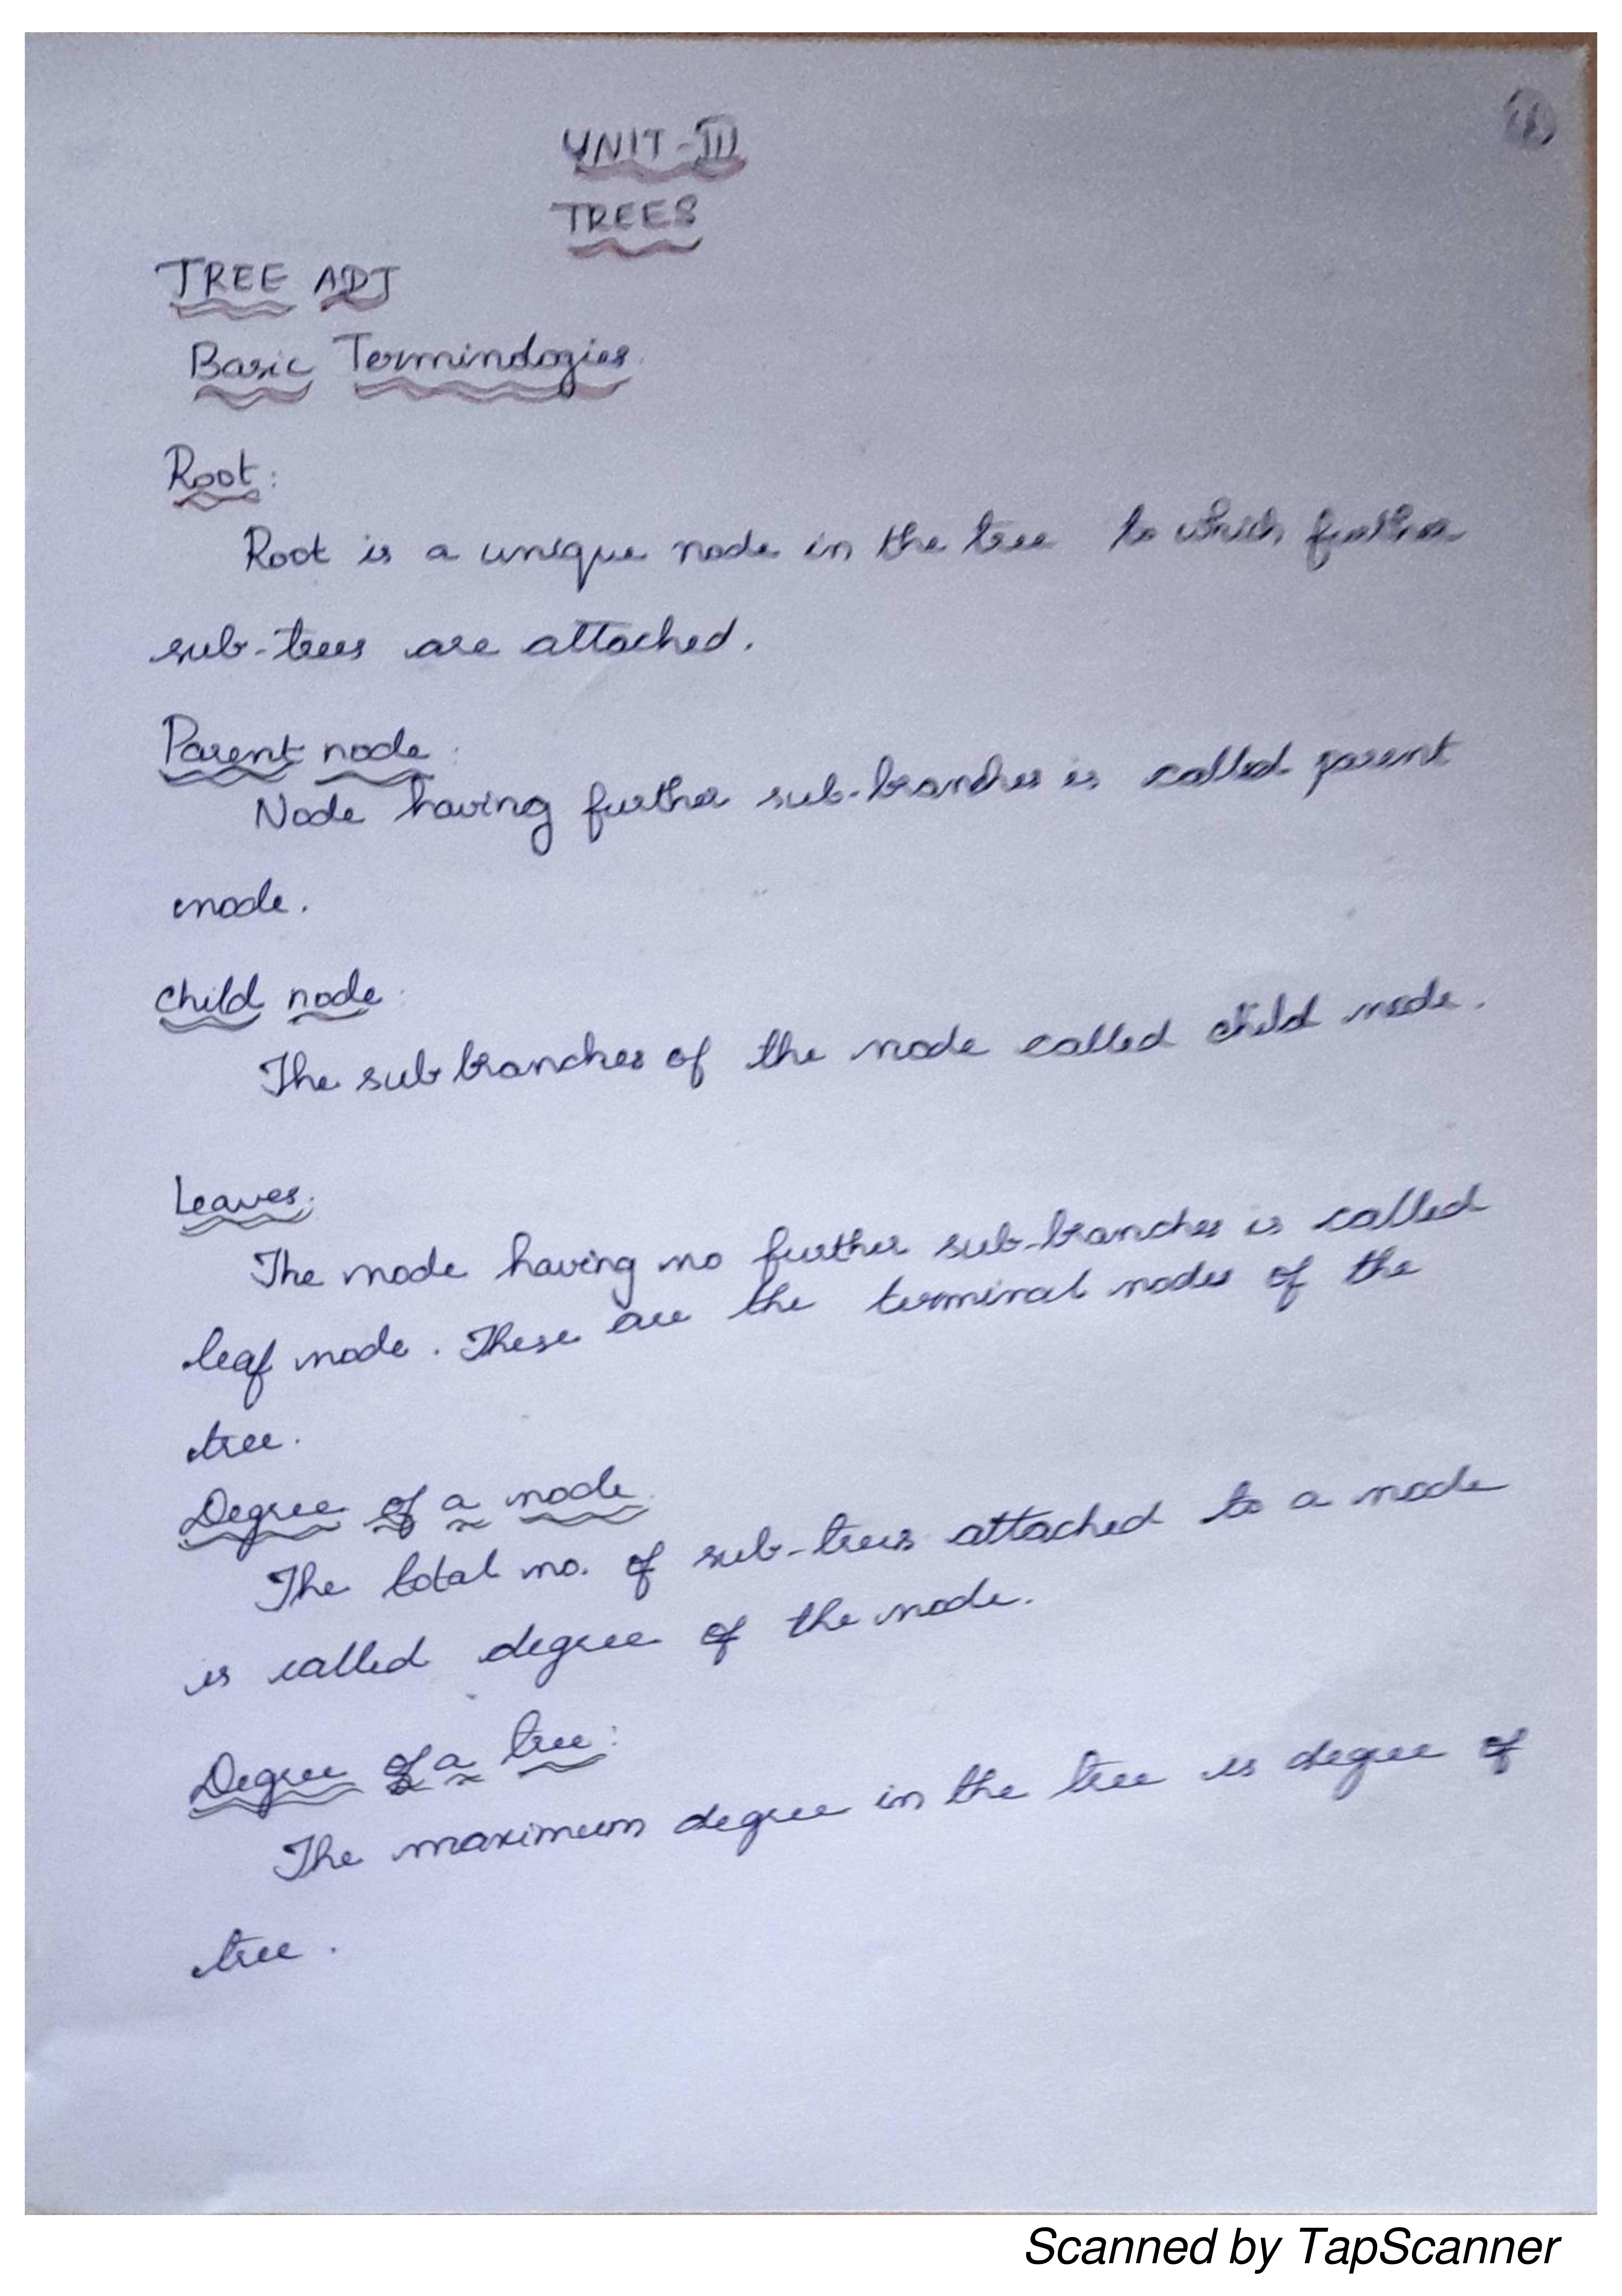 (1)
UNIT-III
TREES
TREE ADT
Basic Terminologies.
Root:
Root is a unique node in the tree to which further
sub-trees are attached.
Parent node:
Node having further sub-branches is called parent
node.
child node:
The sub branches of the node called child node.
Leaves:
The node having no further sub-branches is called
leaf node. These are the terminal nodes of the
tree.
Degree of a node.
The total no. of sub-trees attached to a node
is called degree of the node.
Degree of a tree:
The maximum degree in the tree is degree of
tree.
Scanned by TapScanner